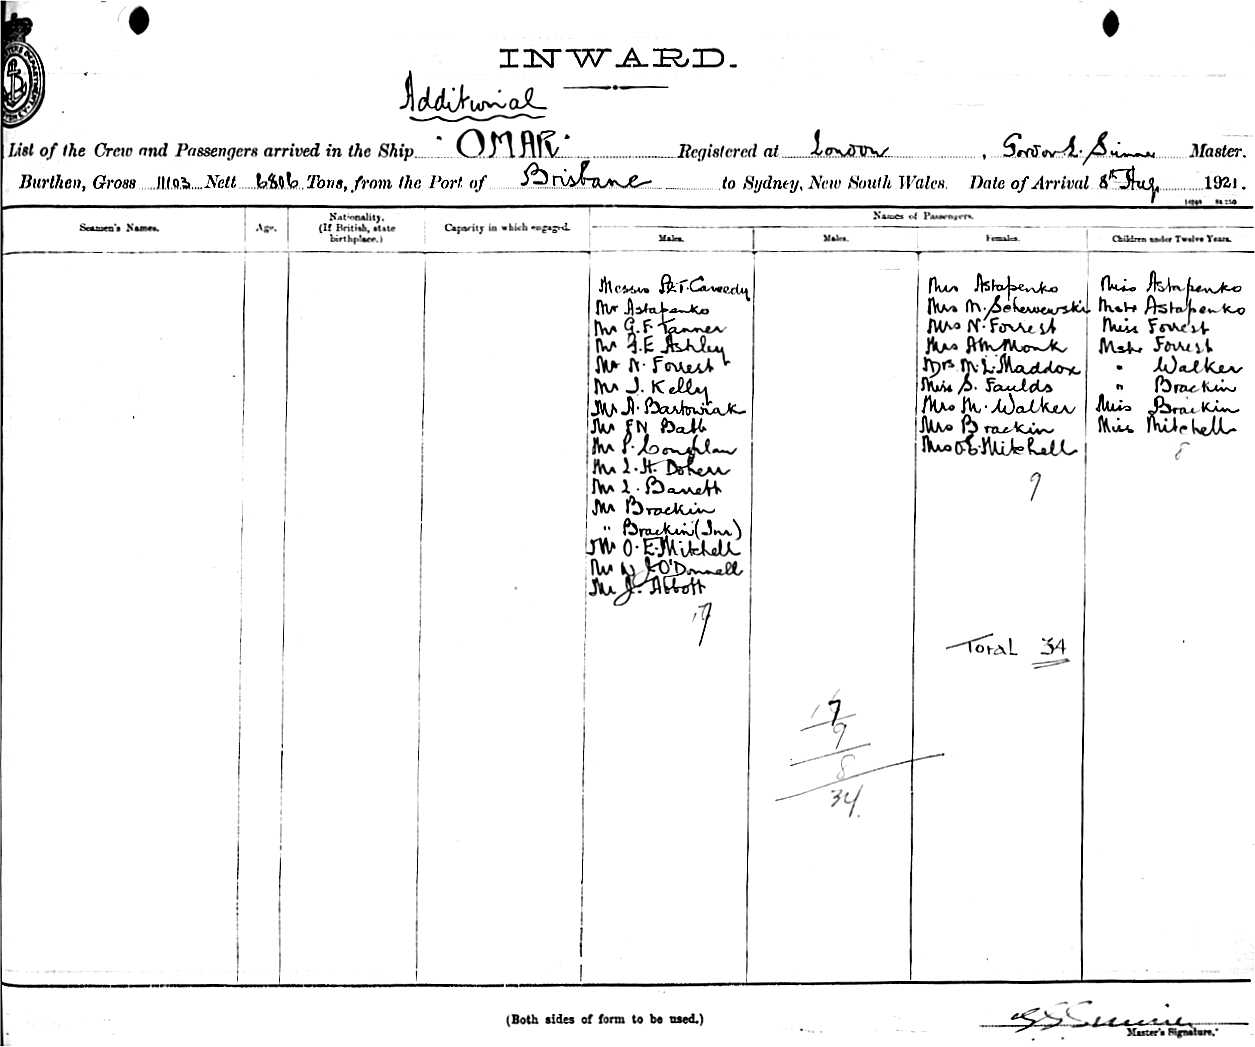 INWARD.
Additional
List of the Crew and Passengers arrived in the Ship "OMAR" Registered at London, Gordon L. Master.
Burthen, Gross 11103 Nett 6806 Tons, from the Port of Brisbane to Sydney, New South Wales. Date of Arrival 8th Aug. 1921.
Names of Passengers.
Seamen's Names. Age. Nationality. (If British, state birthplace.) Capacity in which engaged. Males. Males. Females. Children under Twelve Years.
Messrs
Mr Astapenko
Mr G.F. Tanner
Mr G.E Ashley
Mr N. Forrest
Mr J. Kelly
Mr A. Bartowiak
Mr Batt
Mr P. Coughlan
Mr L.H. Doherr
Mr L. Barrett
Mr Brackin
" Brackin (Jnr)
Mr O.E. Mitchell
Mr O'Donnell
Mr J. Abbott
17
Mrs Astapenko
Mrs M.
Mrs N. Forrest
Mrs AM Monk
Mrs M.L. Maddox
Miss S. Faulds
Mrs M. Walker
Mrs Brackin
Mrs O E Mitchell
9
Miss Astapenko
Mstr Astapenko
Miss Forrest
Mstr Forrest
" Walker
" Brackin
Miss Brackin
Miss Mitchell
8
Total 34
17
9
8
34.
(Both sides of form to be used.)
Master's Signature.